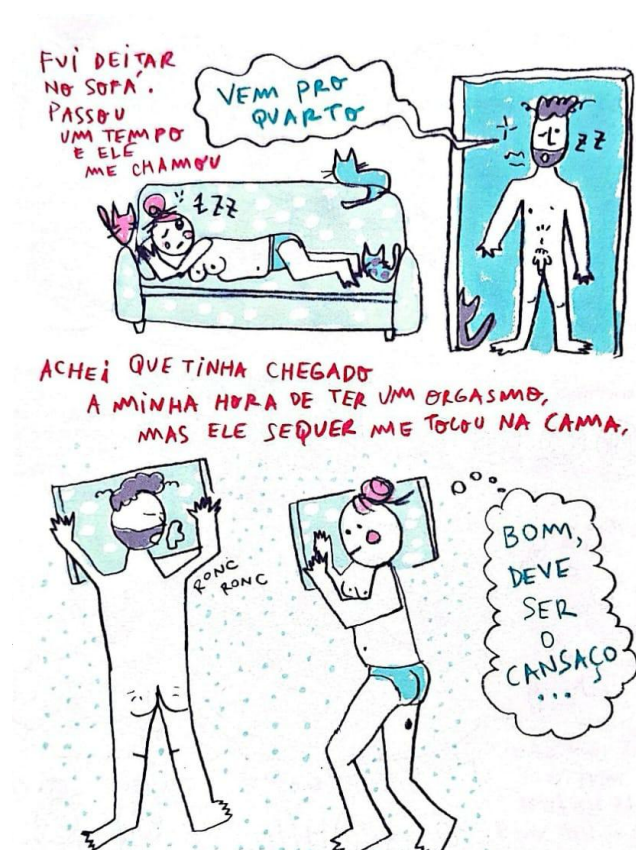 FUI DEITAR
NO SOFÁ.
PASSOU
UM TEMPO
E ELE
ME CHAMOU
VEM PRO
QUARTO
ZZZ
ZZ
ACHEI QUE TINHA CHEGADO
A MINHA HORA DE TER UM ORGASMO,
MAS ELE SEQUER ME TOCOU NA CAMA.
RONC
RONC
BOM,
DEVE
SER
O
CANSAÇO
...